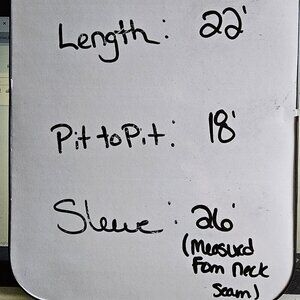 Length: 22'
Pit to Pit: 18'
Sleeve: 26'
(Measurd
From neck
Seam)